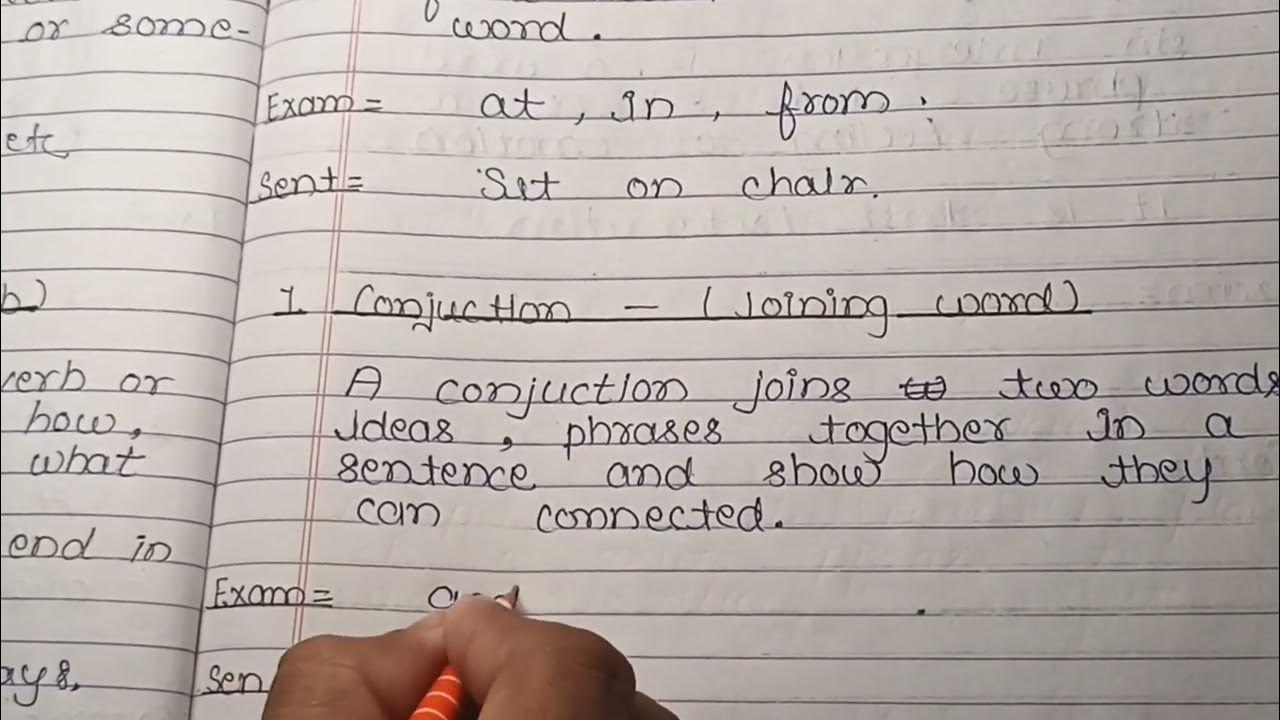 or some-
etc
b)
verb or
how,
what
end in
ays,
word.
Exam = at, in, from.
Sent = Set on chair.
1 Conjuction - (Joining word)
A conjuction joins two words
ideas, phrases together in a
sentence and show how they
can connected.
Exam = and
Sen